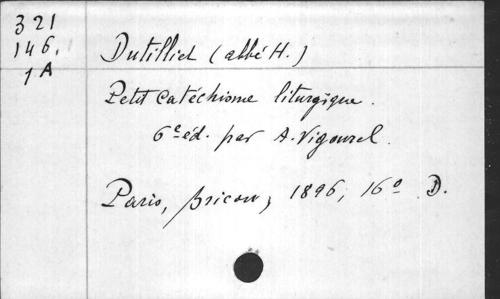 321
146.
1A
Dutilliet (abbé H.)
Petit catéchisme liturgique.
6e éd. par A. Vigourel.
Paris, Bricon, 1896, 16° D.